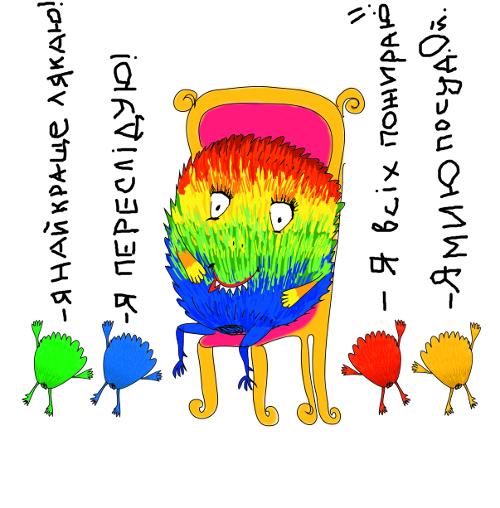 -Я НАЙКРАЩЕ ЛЯКАЮ!
-Я ПЕРЕСЛІДУЮ!
- Я всіх ПОЖИРАЮ!!
-Я МИЮ ПОСУД.Ой.